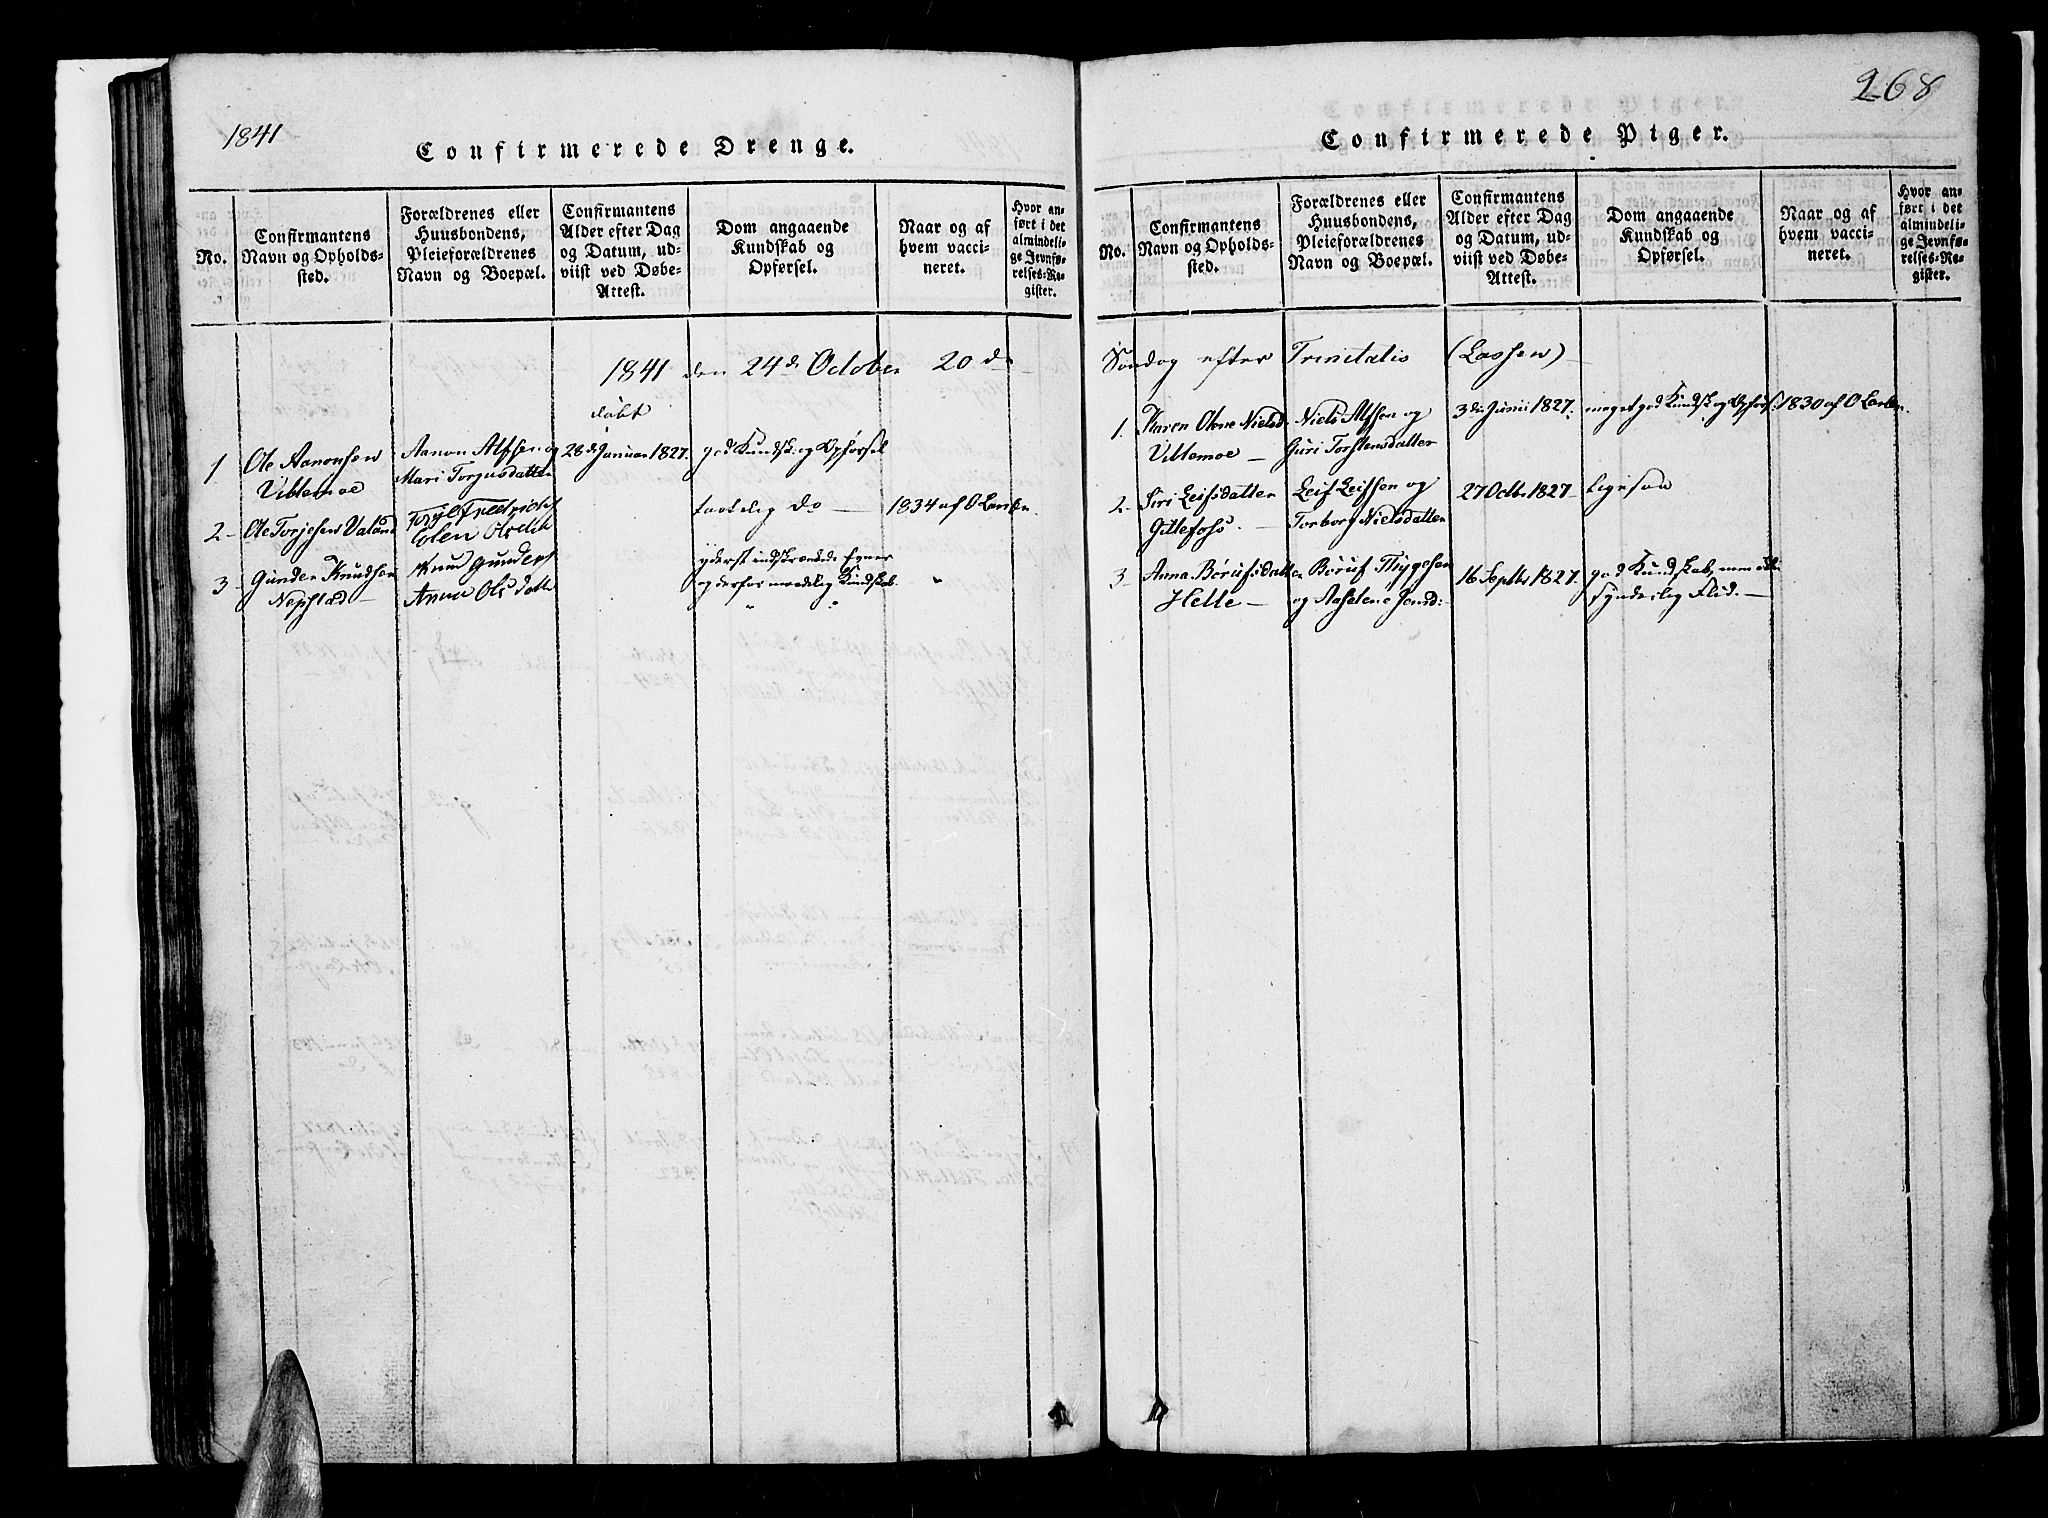 1841
Confirmerede Drenge.
No.
Confirmantens
Navn og Opholds-
sted.
Forældrenes eller
Huusbondens,
Pleieforældrenes
Navn og Boepæl.
Confirmantens
Alder efter Dag
og Datum, ud-
viist ved Døbe-
Attest.
Dom angaaende
Kundskab og
Opførsel.
Naar og af
hvem vacci-
neret.
Hvor an-
ført i det
almindeli-
ge Jevnfø-
relses-Re-
gister.
1841 den 24d October 20 d
døbt
1 Ole Aanonsen
Vittemoe
Aanon Alfsen og
Mari Torjusdatter
28d Januar 1827.
god Kundsk. og Opførsel
2- Ole Torjesen Valand
Elen
taalelig do
1834 af O Larsen.
3- Gunder Knudsen
Nepstad -
Knud Gunders
Anne Ols datt
yderst indskrænkede Evner
og derfor maadelig Kundskab
" " "
268
Confirmerede Piger.
No.
Confirmantens
Navn og Opholds-
sted.
Forældrenes eller
Huusbondens,
Pleieforældrenes
Navn og Boepæl.
Confirmantens
Alder efter Dag
og Datum, ud-
viist ved Døbe-
Attest.
Dom angaaende
Kundskab og
Opførsel.
Naar og af
hvem vacci-
neret.
Hvor an-
ført i det
almindeli-
ge Jevnfø-
relses-Re-
gister.
Søndag efter Trinitatis (Lassen) -
1. Karen Olene Nielsd
Vittemoe -
Niels Alfsen og
Guri Torstensdatter
3die Junii 1827.
meget god Kundsk. og Opførs.
1830 af O Larsen.
2- Siri Leifsdatter
Gittefoss. -
Leif Leifsen og
Torborg Nielsdatter
27 Octbr 1827-
ligesaa
3- Anna Børufsdatter
Helle -
Børuf Thygesen
og Aaselene Jensd:
16 Septbr 1827.
god Kundskab, men ikke
synderlig Flid. -